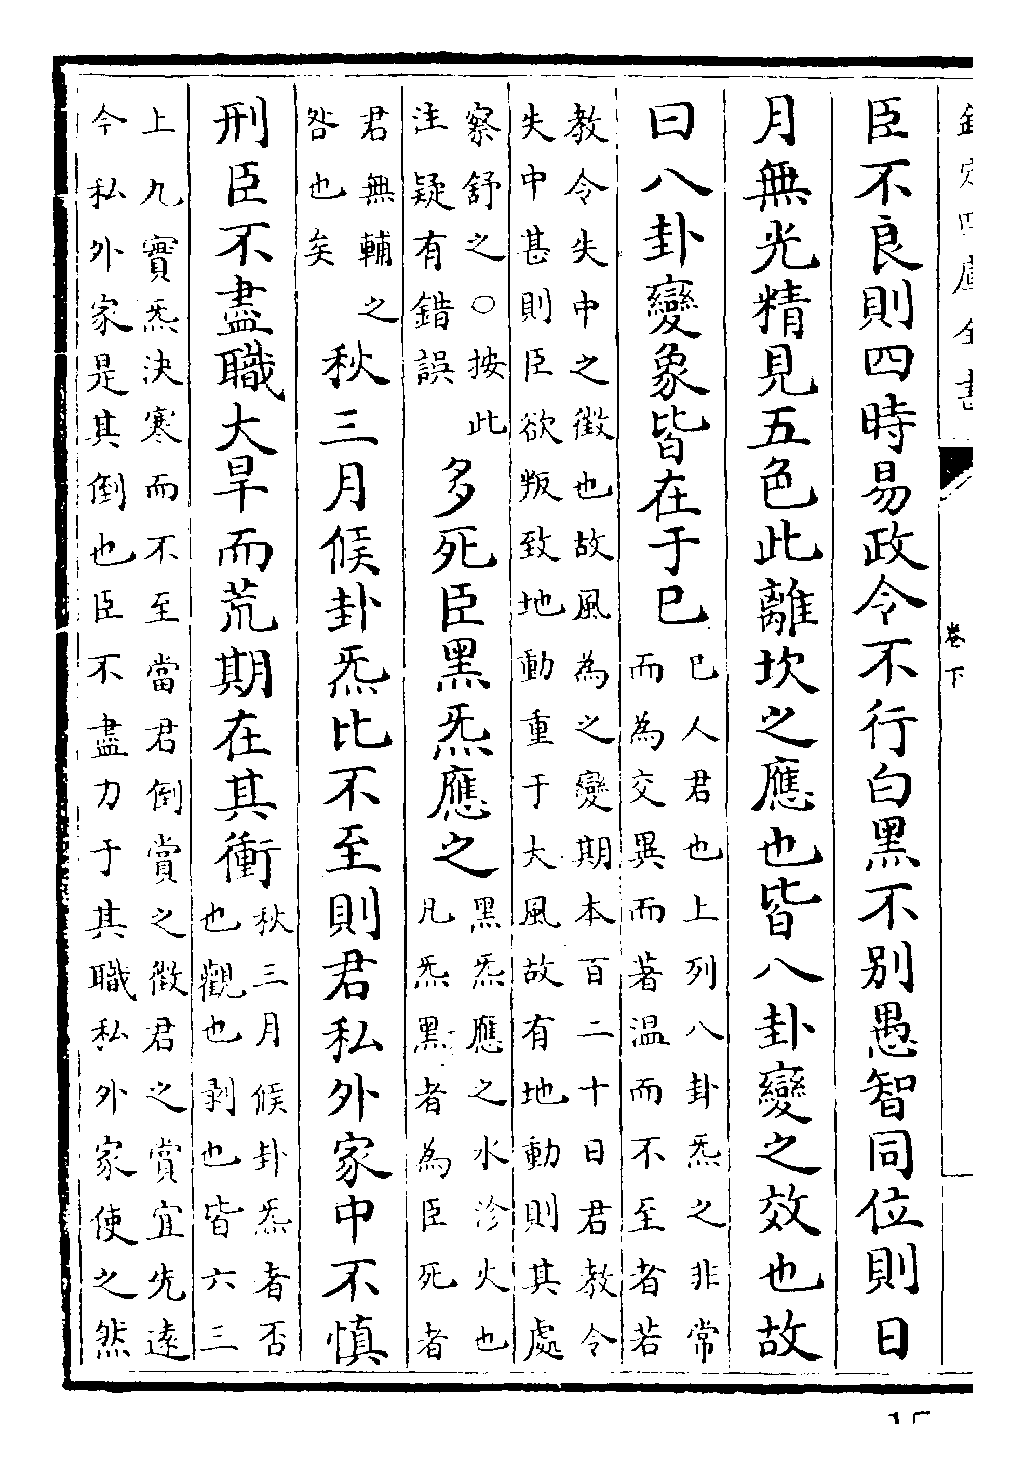 欽定四庫全書
卷下
臣不良則四時易政令不行白黑不别愚智同位則日
月無光精見五色此離坎之應也皆八卦變之效也故
曰八卦變象皆在于已
已人君也上列八卦炁之非常
而為交異而著温而不至者若
教令失中之徵也故風為之變期本百二十日君教令
失中甚則臣欲叛致地動重于大風故有地動則其處
察舒之○按此
注疑有錯誤
多死臣黑炁應之
黑炁應之水沴火也
凡炁黑者為臣死者
君無輔之
咎也矣
秋三月候卦炁比不至則君私外家中不慎
刑臣不盡職大旱而荒期在其衝
秋三月候卦炁者否
也觀也剥也皆六三
上九實炁決寒而不至當君倒賞之徵君之賞宜先遠
今私外家是其倒也臣不盡力于其職私外家使之然